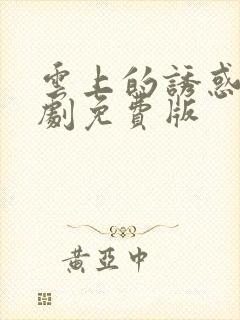 雲上的誘惑
劇免費版
黃亞中